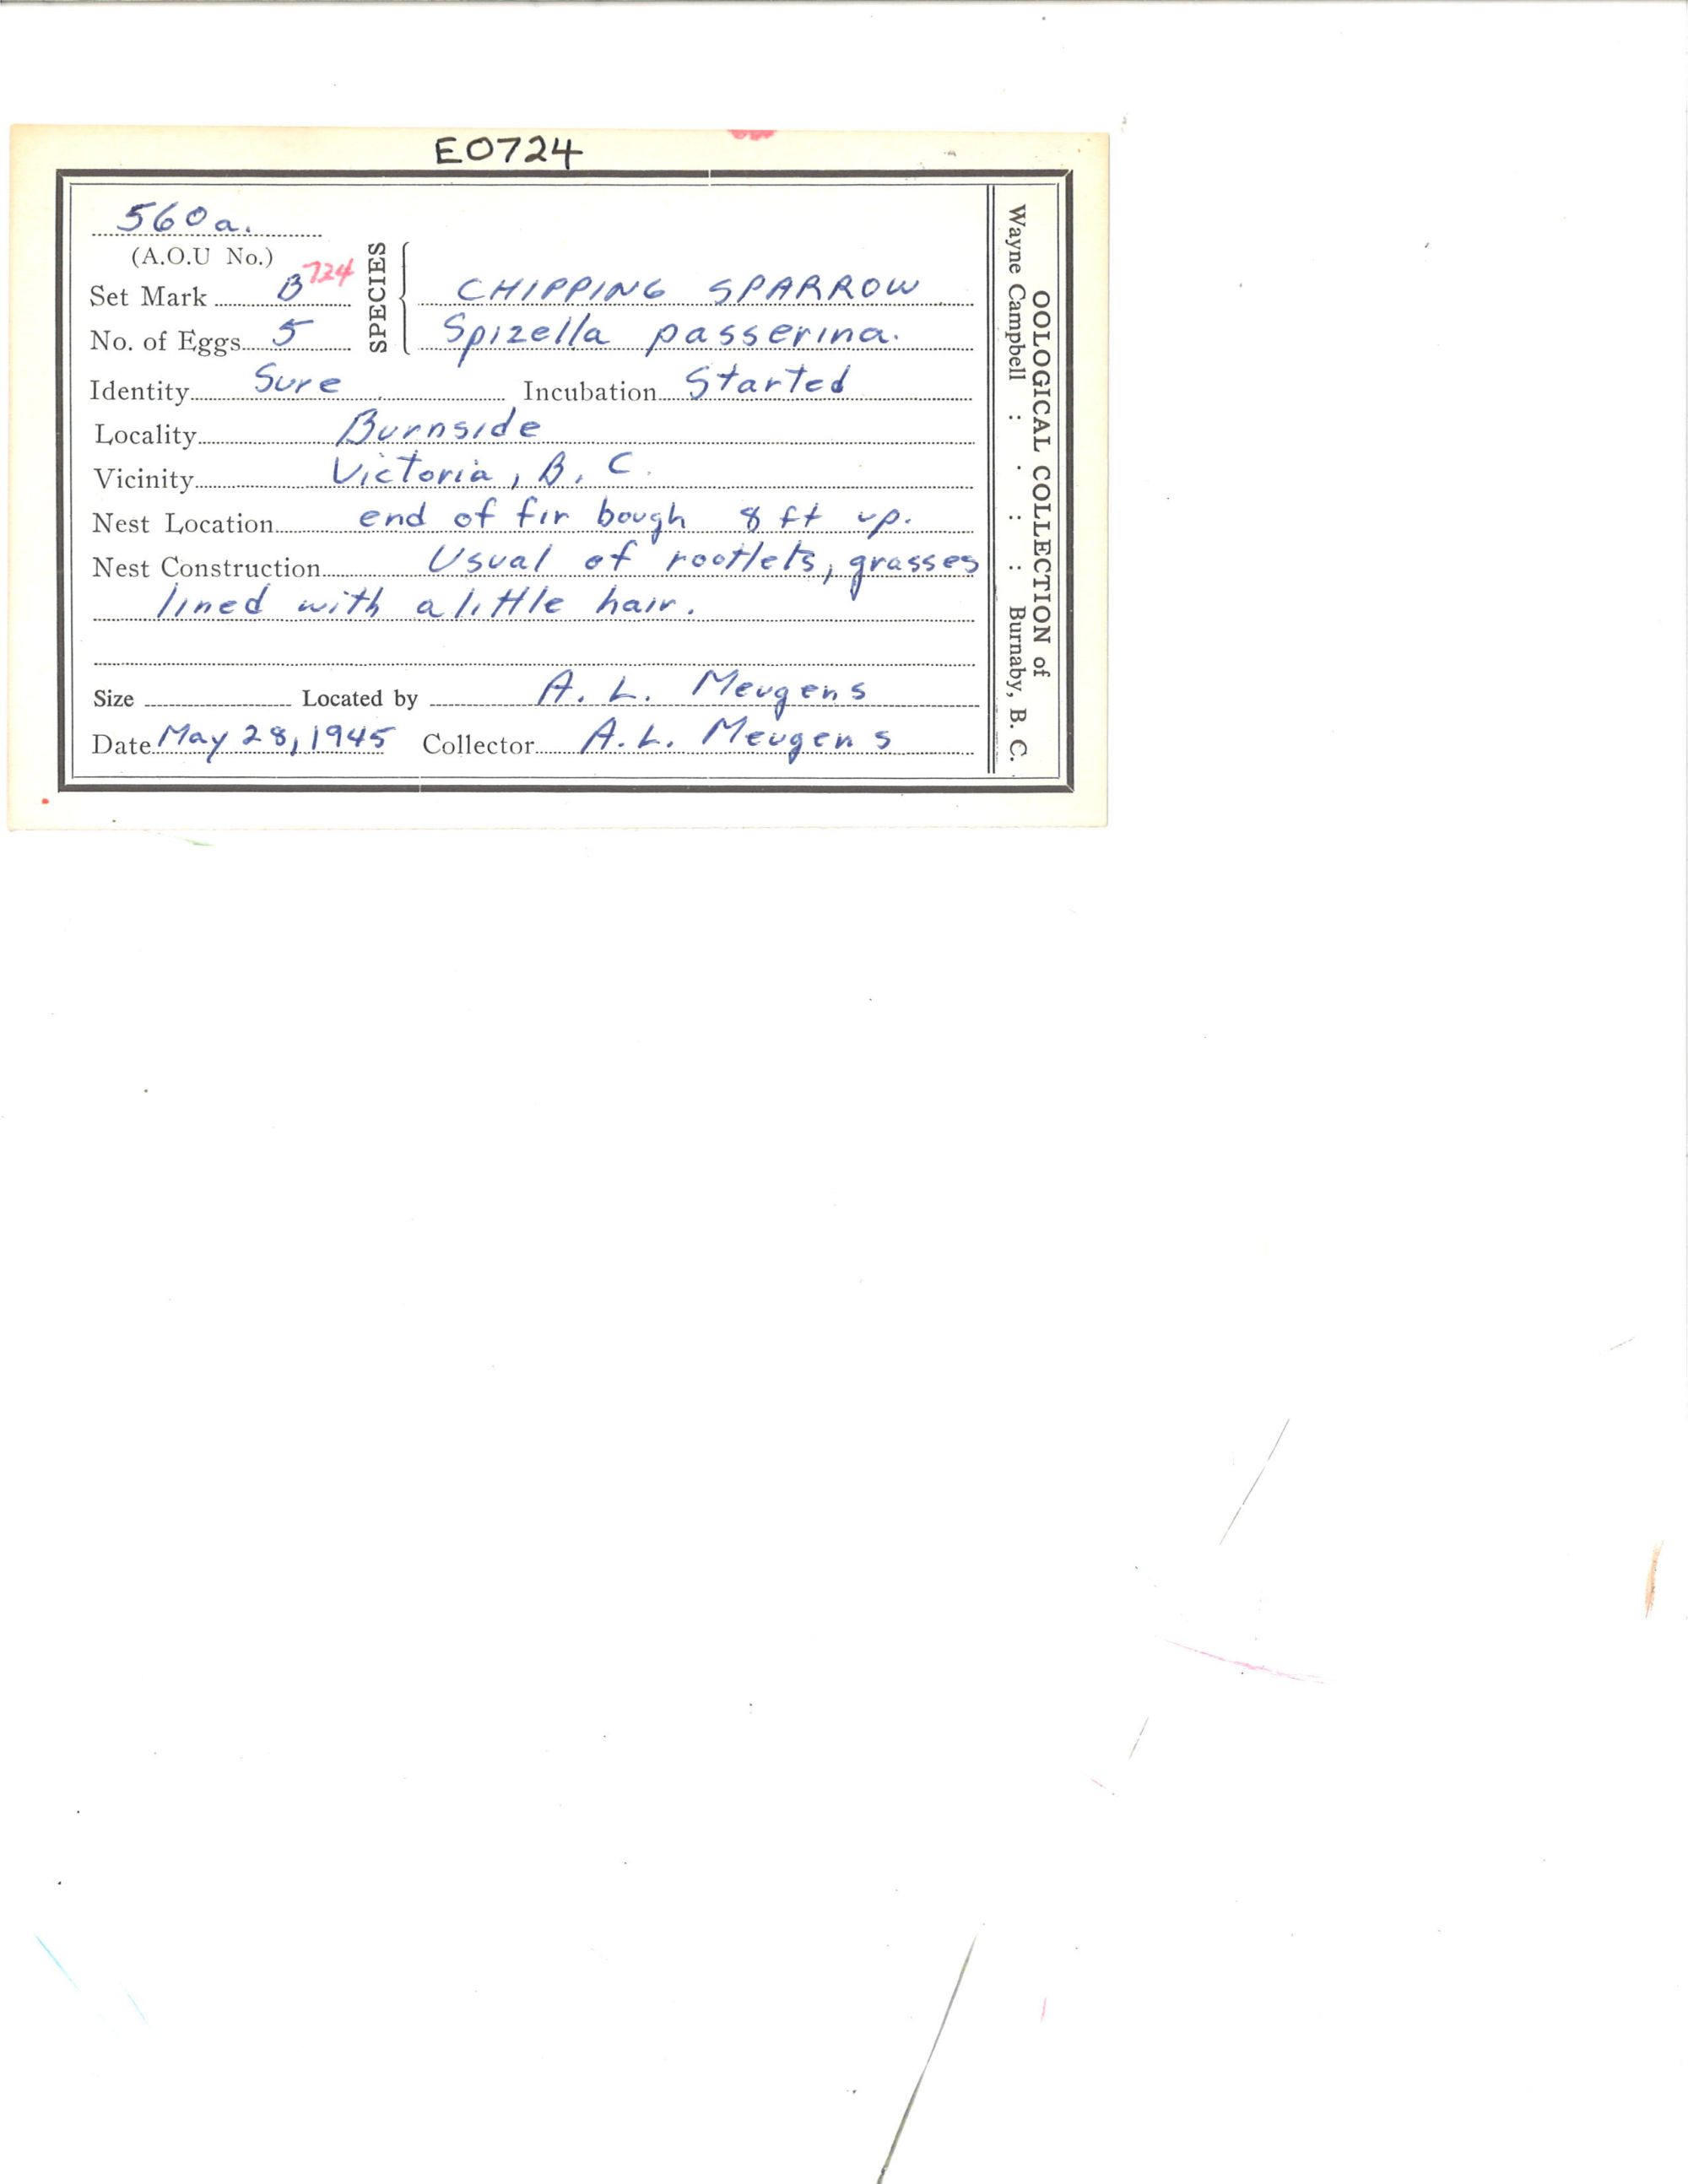 E0724
560a.
(A.O.U No.)
Set Mark B 724
No. of Eggs 5
SPECIES
CHIPPING SPARROW
Spizella passerina.
Identity Sure Incubation Started
Locality Burnside
Vicinity Victoria, B. C.
Nest Location end of fir bough 8 ft up.
Nest Construction Usual of rootlets, grasses
lined with a little hair.
Size Located by A. L. Meugens
Date May 28, 1945 Collector A. L. Meugens
OOLOGICAL COLLECTION of
Wayne Campbell : . : : Burnaby, B. C.